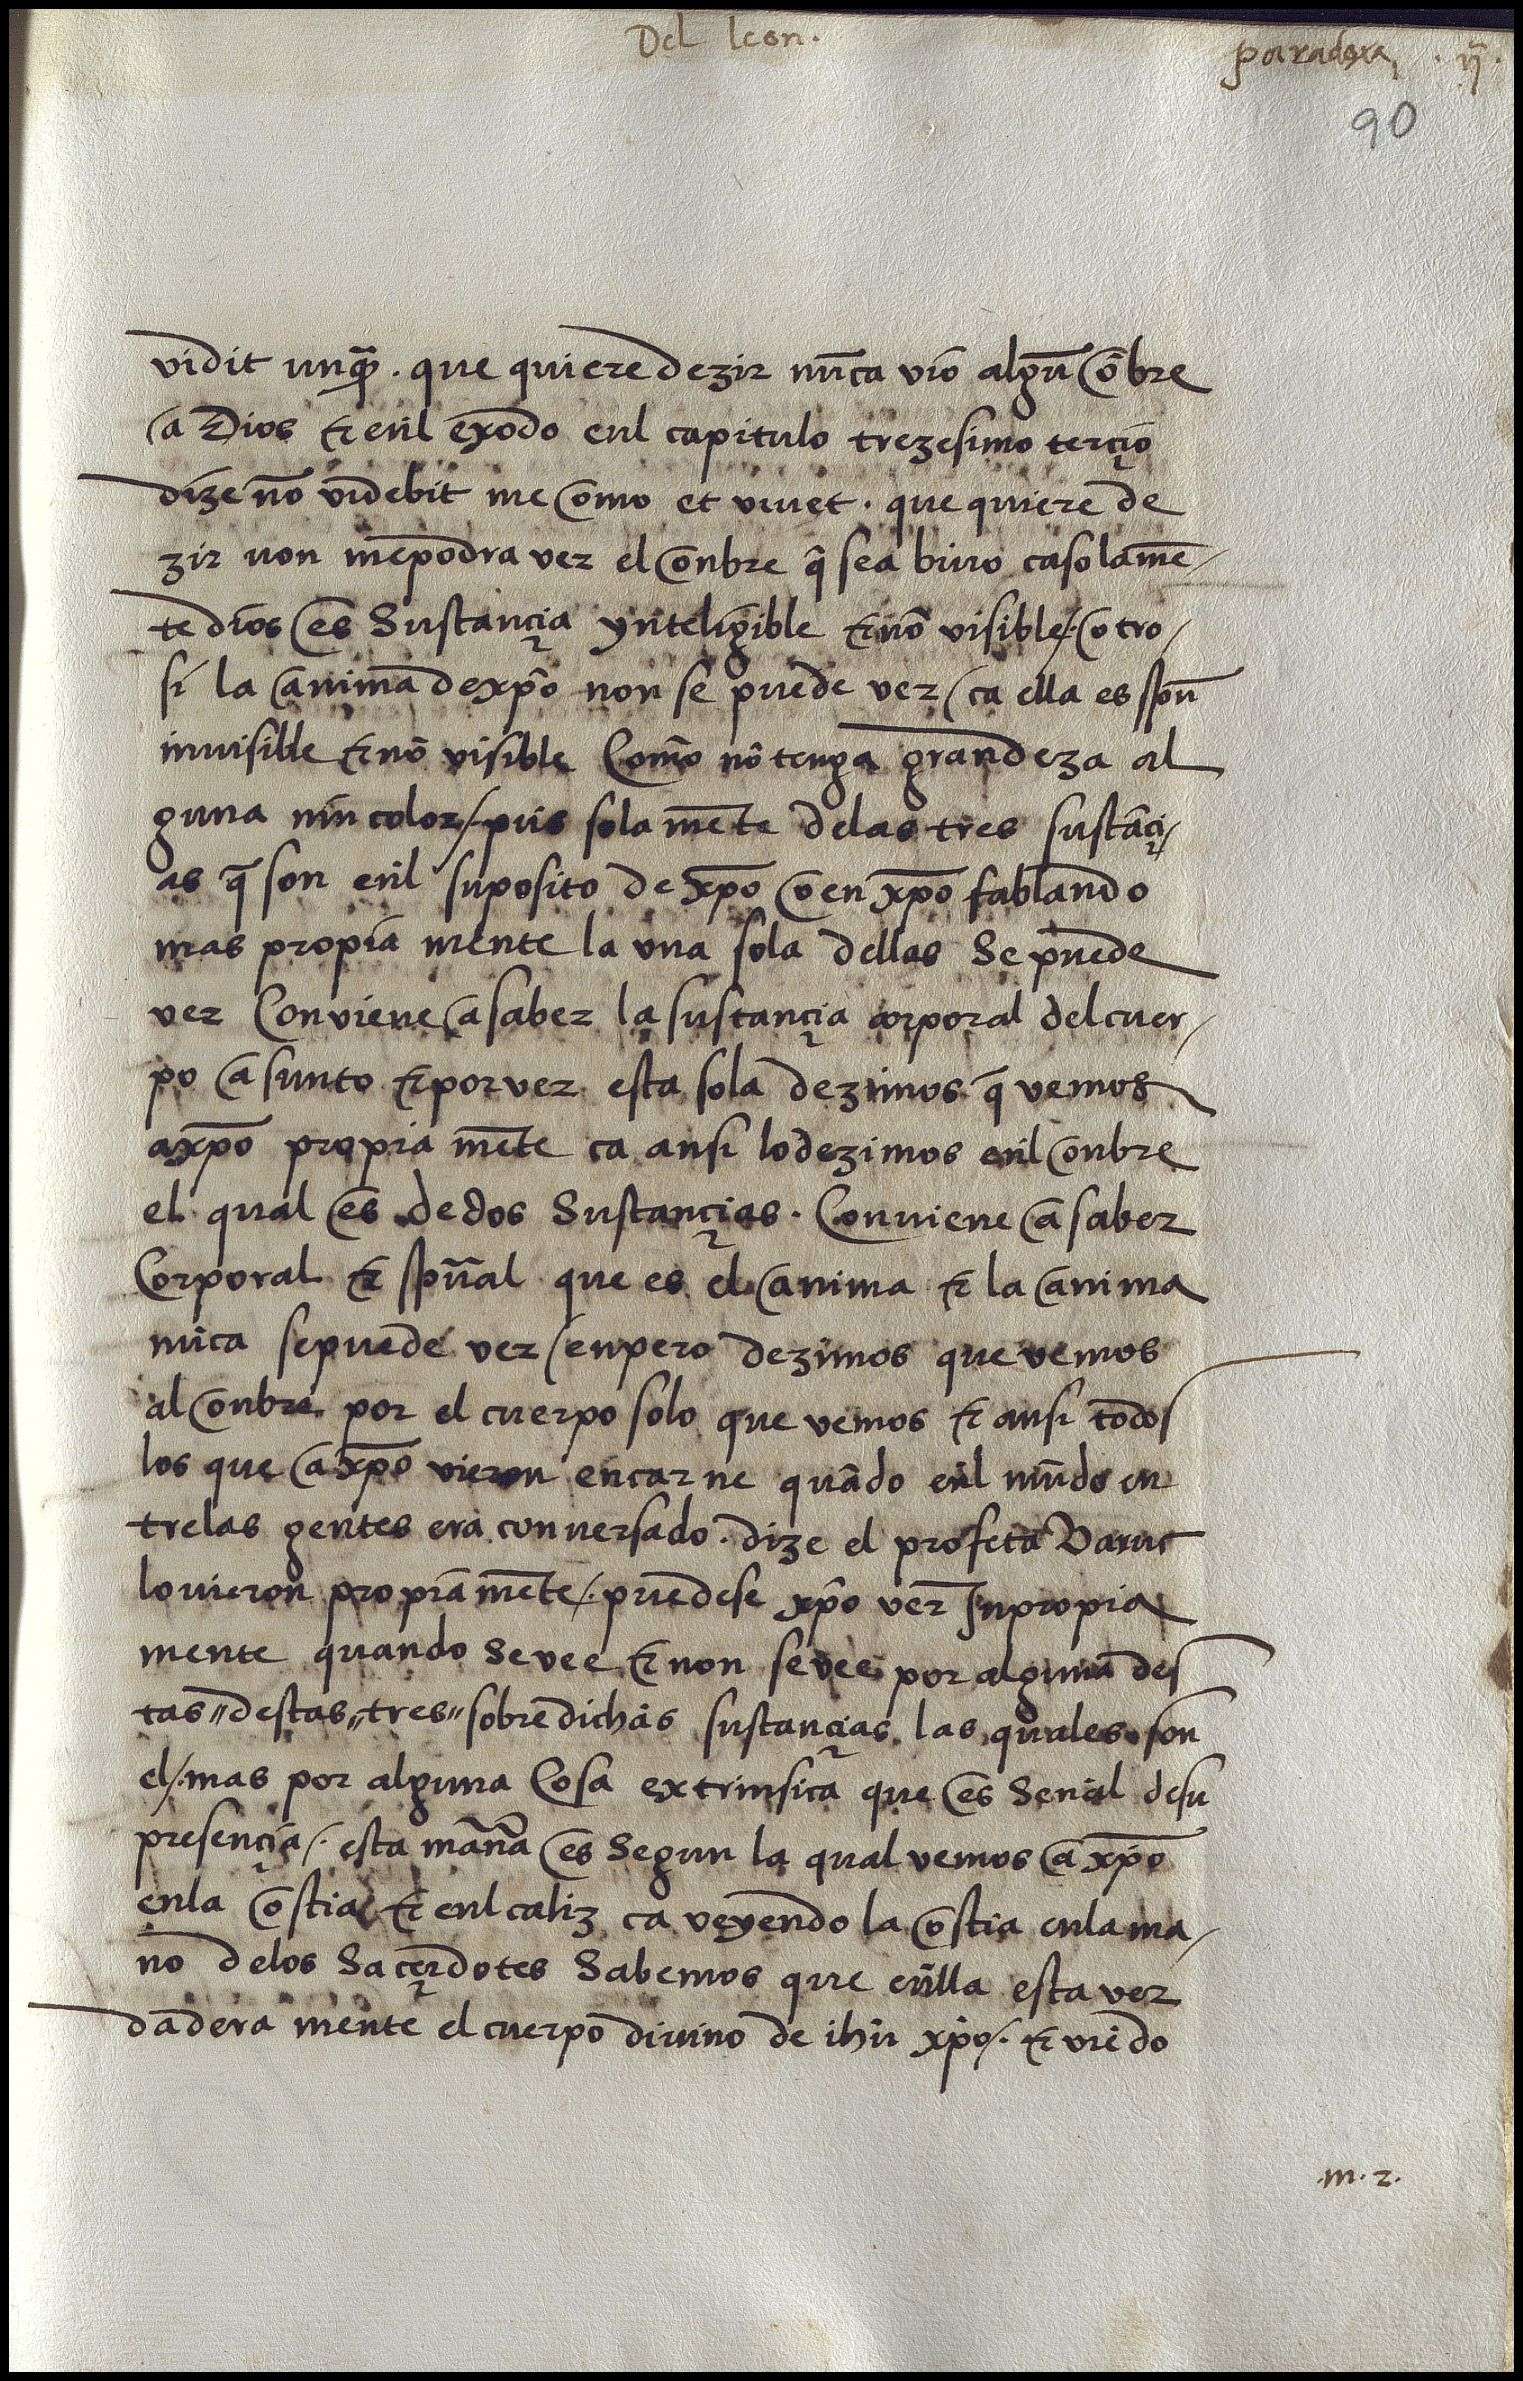 Del leon.
paradoxa . ij̃ .
90
vidit unq̃ȝ . que quiere dezir nũca vio algũ õbre
a Dios ⁊ enl exodo enl capitulo trezesimo terçio
dize nõ videbit me omo et viuet . que quiere de
zir non me podra ver el onbre q̃ sea biuo ca solamẽ
te dios es Sustançia ynteligible ⁊ nõ visible /. otro
si la anima de xp̃o non se puede ver / ca ella es spũ
inuisible ⁊ nõ visible Como nõ tenga grandeza al
guna nin color /. pus sola mẽte delas tres sustãçi
as q̃ son enl suposito de xp̃o o en xp̃o fablando
mas propia mente la vna sola dellas Se puede
ver Conviene a saber la sustançia corporal del cuer
po asunto ⁊ por ver esta sola dezimos q̃ vemos
axp̃o propia mẽte ca ansi lo dezimos enl onbre
el qual es de dos Sustançias . Conuiene a saber
Corporal ⁊ spũal que es el anima ⁊ la anima
nũca sepuede ver / enpero dezimos que vemos
al onbre por el cuerpo solo que vemos ⁊ ansi todos
los que a xp̃o vieron en carne quãdo enl mũdo en
trelas gentes era conuersado . dize el profeta Baruc
lo vieron propia mẽte /. puedese xp̃o ver Inpropia
mente quando Se vee ⁊ non se vee por alguna des
tas // destas // tres // sobre dichas sustançias las quales son
el /. mas por alguna Cosa extrinsica que es Señal desu
presençia /. esta mãña es Segun la qual vemos a xp̃o
enla ostia ⁊ enl caliz ca veyendo la ostia enla ma
no delos Saçerdotes Sabemos que enlla esta ver
dadera mente el cuerpo diuino de ihũ xp̃o /. ⁊ viẽdo
.m.2.